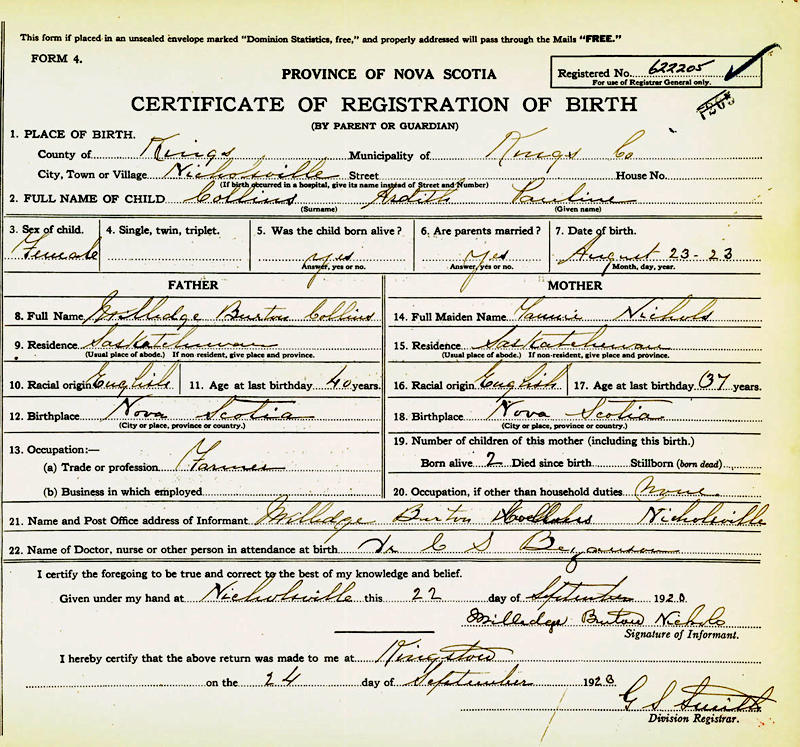 This form if placed in an unsealed envelope marked "Dominion Statistics, free," and properly addressed will pass through the Mails "FREE."
FORM 4.
Registered No. 622205
For use of Registrar General only.
PROVINCE OF NOVA SCOTIA
CERTIFICATE OF REGISTRATION OF BIRTH
(BY PARENT OR GUARDIAN)
1. PLACE OF BIRTH.
County of Kings Municipality of Kings Co
City, Town or Village Nicholsville Street House No.
(If birth occurred in a hospital, give its name instead of Street and Number)
2. FULL NAME OF CHILD Collins Ardith Pauline
(Surname) (Given name)
3. Sex of child. 4. Single, twin, triplet. 5. Was the child born alive? 6. Are parents married? 7. Date of birth.
Female yes yes August 23-23
Answer, yes or no. Answer, yes or no. Month, day, year.
FATHER MOTHER
8. Full Name Milledge Burton Collins 14. Full Maiden Name Fannie Nichols
9. Residence Saskatchewan 15. Residence Saskatchewan
(Usual place of abode.) If non-resident, give place and province. (Usual place of abode.) If non-resident, give place and province.
10. Racial origin English 11. Age at last birthday 40 years. 16. Racial origin English 17. Age at last birthday 37 years.
12. Birthplace Nova Scotia 18. Birthplace Nova Scotia
(City or place, province or country.) (City or place, province or country.)
13. Occupation:— 19. Number of children of this mother (including this birth.)
(a) Trade or profession Farmer Born alive 2 Died since birth Stillborn (born dead)
(b) Business in which employed 20. Occupation, if other than household duties none
21. Name and Post Office address of Informant Milledge Burton Collins Nicholsville
22. Name of Doctor, nurse or other person in attendance at birth Dr C S
I certify the foregoing to be true and correct to the best of my knowledge and belief.
Given under my hand at Nicholsville this 22 day of September 1923
Milledge Burton Nichols
Signature of Informant.
I hereby certify that the above return was made to me at Kingston
on the 24 day of September 1923
G S Smith
Division Registrar.